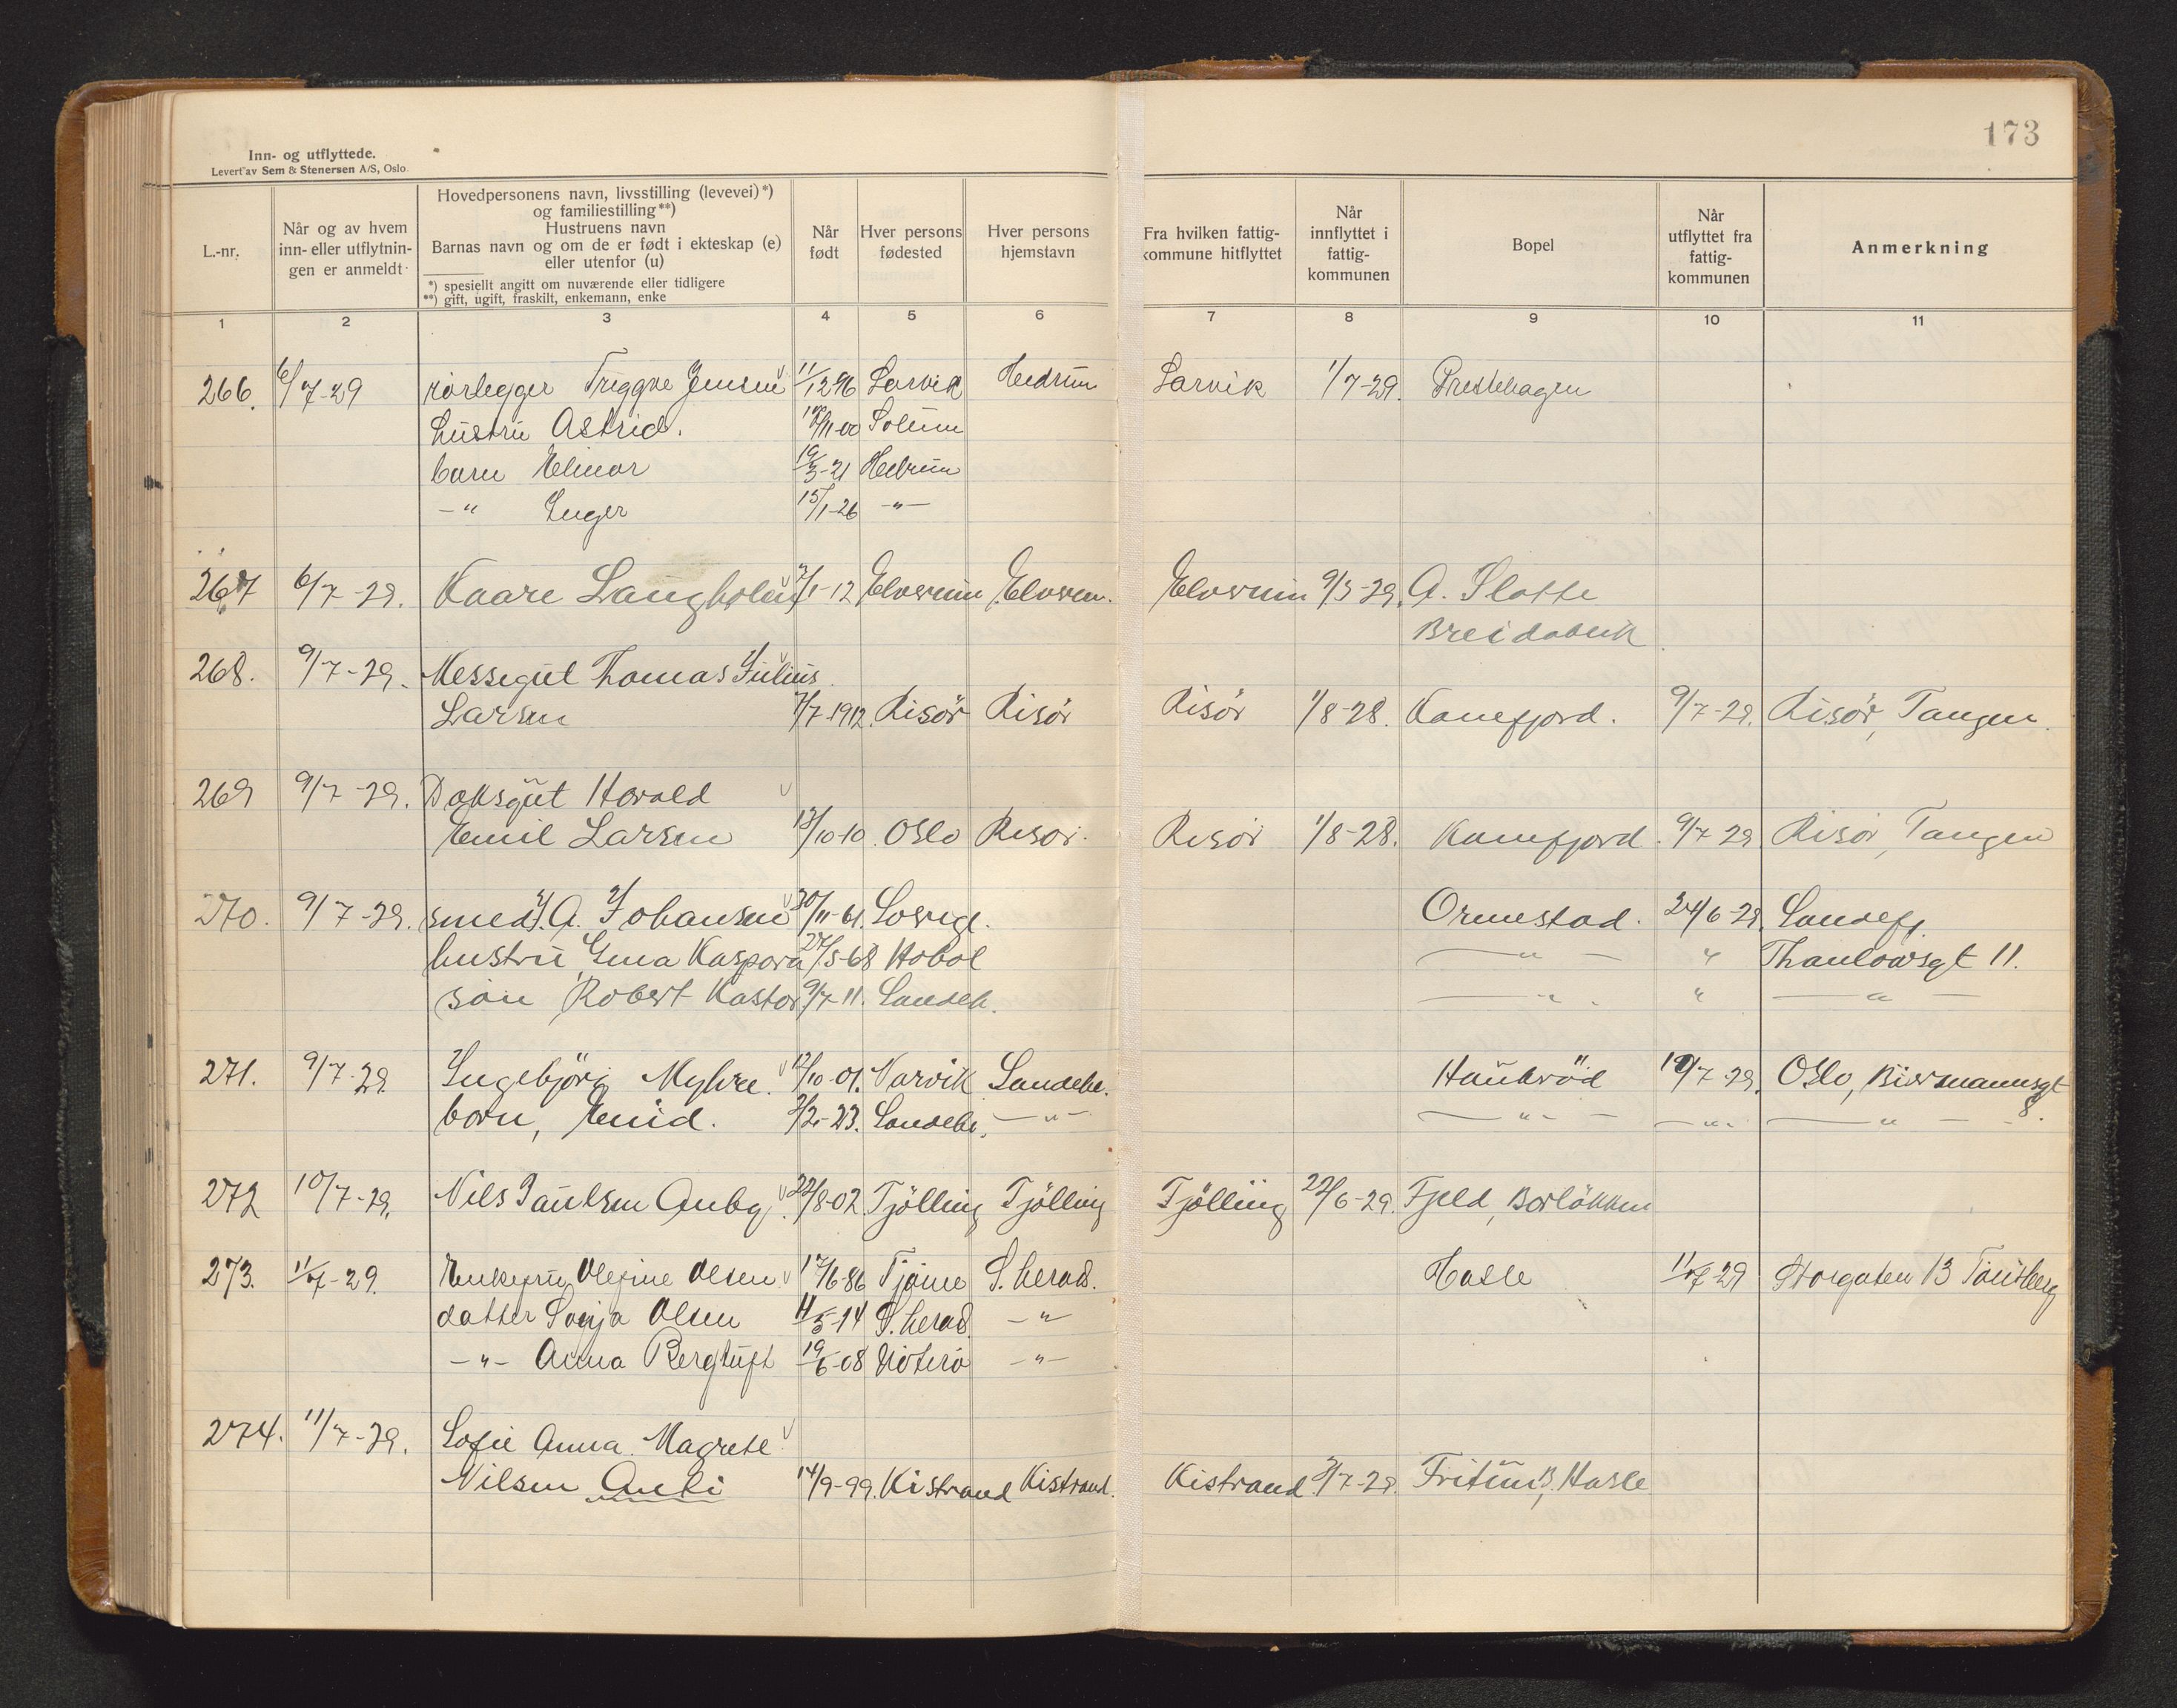 173
Inn- og utflyttede.
Levert av Sem & Stenersen A/S, Oslo.
L.-nr.
Når og av hvem inn- eller utflytnin- gen er anmeldt
Hovedpersonens navn, livsstilling (levevei)*)
og familiestilling**)
Hustruens navn
Barnas navn og om de er født i ekteskap (e)
eller utenfor (u)
*) spesiellt angitt om nuværende eller tidligere
**) gift, ugift, fraskilt, enkemann, enke
Når født
Hver persons fødested
Hver persons hjemstavn
Fra hvilken fattig- kommune hitflyttet
Når innflyttet i fattig- kommunen
Bopel
Når utflyttet fra fattig- kommunen
Anmerkning
1 2 3 4 5 6 7 8 9 10 11
266. 6/7-29 rörlegger Tryggve Jensen 11/12 96 Larvik Hedrum Larvik 1/7-29. Prestehagen
hustru Astrid. /11-00 Solum
barn Elinor 19/3-21 Hedrum
-"- Inger 15/1-26 -"-
267 6/7-29. Kaare Langholen /1-12 Elverum Elverum. Elverum 9/3-29. A. Slotte
Breidablik
268. 9/7-29. Messegut Thomas Julius
Larsen 7/7-1912. Risör Risör Risör 1/8-28. Kamfjord. 9/7-29. Risör, Tangen.
269 9/7-29. Daksgut Harald
Emil Larsen 13/10-10. Oslo Risör. Risör 1/8-28. Kamfjord. 9/7 29 Risör, Tangen
270. 9/7-29. smed J. A. Johansen 30/11-61. Sverige. Ormestad. 24/6-29. Sandefj.
hustru Gina Kaspara 27/5-68 Hobøl -"- " Thaulowsgt 11.
sön Robert Kastor 9/7-11. Sandeh. -"- " -"-
271. 9/7-29 Ingebjörg Myhre. 12/10-01. Narvik Sandehe. Haukröd 19/7-29. Oslo, Biermannsgt
barn, Enid. 2/2-23. Sandehe. -"- -"- -"- -"- 8.
272 10/7-29. Nils Paulsen Auby. 22/8-02. Tjölling Tjölling Tjölling 22/6-29. Fjeld, Borlökken
273. 11/7-29. Enkefru Olefine Olsen 17/6-86 Tjöme S. herad. Hasle 11/7 29 Storgaten 13 Tönsberg
datter Sonja Olsen 11/5-14 S. herad. -"-
-"- Anna Bergtuft 19/6-08 Nöterö -"-
274. 11/7-29. Sofie Anna Magrete
Nilsen Anti 14/9-99. Kistrand Kistrand. Kistrand /7-29. Fritun, Hasle